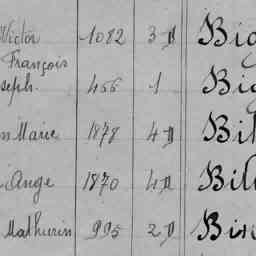 Victor 1082 3 D Big
François
seph. 466 1 Big
n Marie 1878 4 D Bil
Ange 1870 4 D Bil
Mathurin 995 2 D Bin